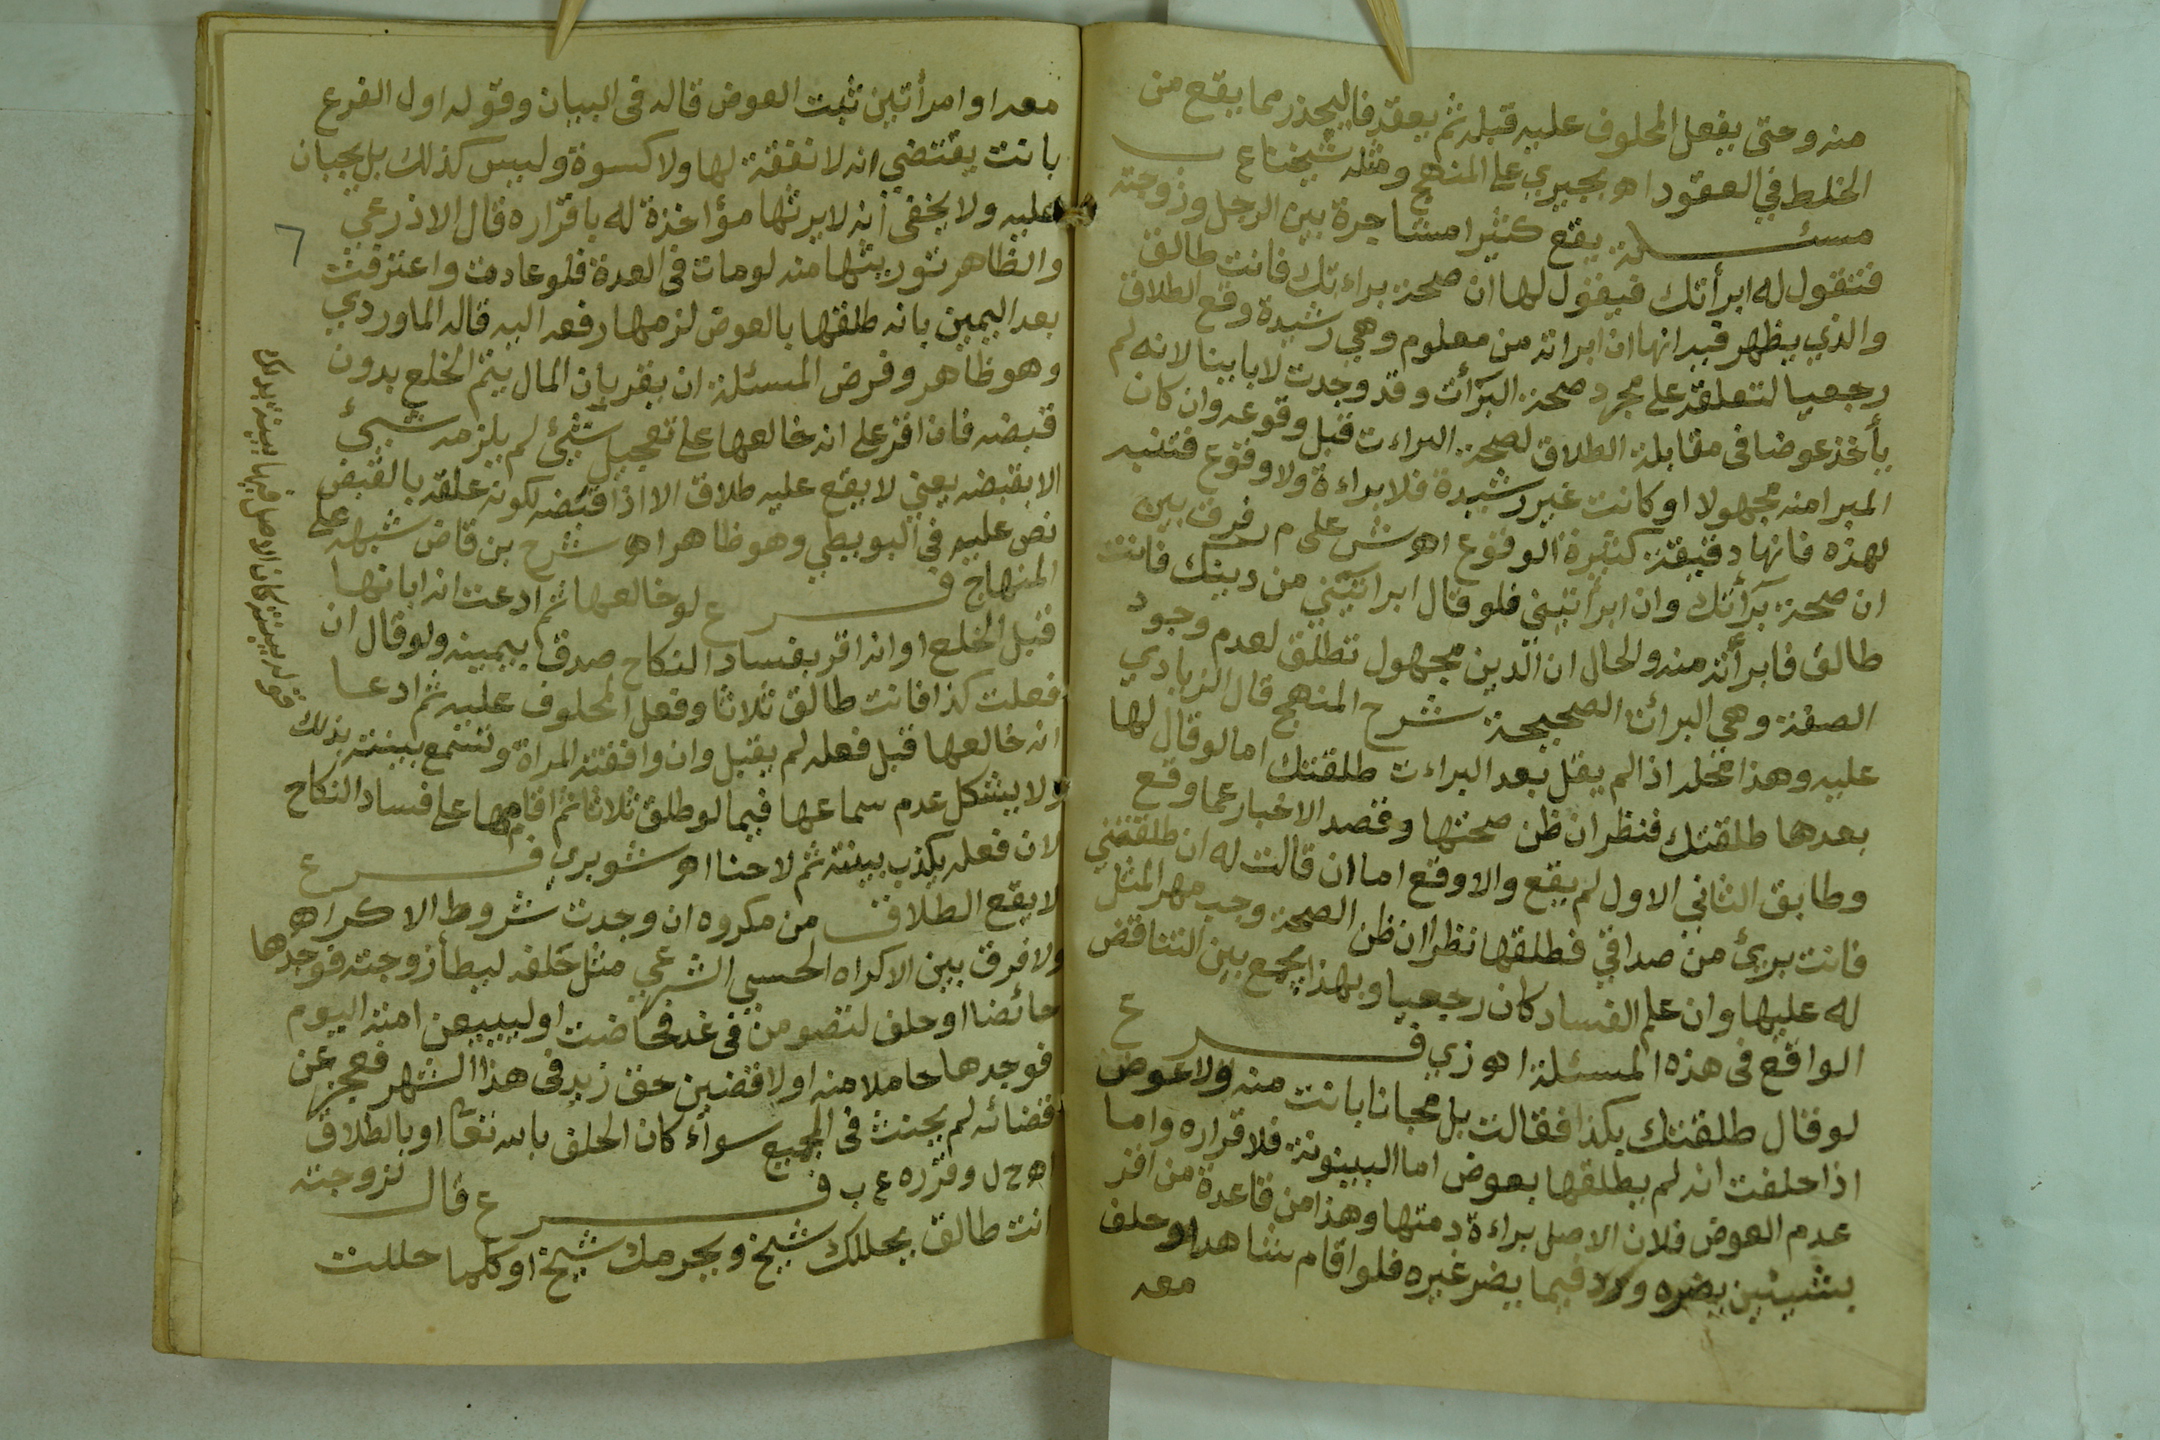 منه وحتى يفعل المحلوف عليه قبله ثم يعقد فاليحذر مما يقع من
الخلط في العقود اه بجيرمي على المنهج ومثله شيخنا ع ب
مسئلة يقع كثيرا مشاجرة بين الرجل وزوجته
فتقول له ابرأتك فيقول لها ان صحة براءتك فانت طالق
والذي يظهر فيه انها ان ابراته من معلوم وهي رشيدة وقع الطلاق
رجعيا لتعلقه على مجرد صحة البرأت وقد وجدت لا باينا لانه لم
يأخذ عوضا في مقابلة الطلاق لصحة البراءت قبل وقوعه وان كان
المبرا منه مجهولا او كانت غير رشيدة فلا براءة ولا وقوع فتنبه
لهذه فانها دقيقة كثيرة الوقوع اه ش على م ر فرق بين
ان صحة برأتك وان ابرأتيني فلو قال ابراتيني من دينك فانت
طالق فابرأته منه والحال ان الدين مجهول تطلق لعدم وجود
الصفة وهي البرائة الصحيحة شرح المنهج قال الزيادي
عليه وهذا محله اذا لم يقل بعد البراءت طلقتك اما لو قال لها
بعدها طلقتك فنظر ان ظن صحتها وقصد الاخبار عما وقع
وطابق الثاني الاول لم يقع والا وقع اما ان قالت له ان طلقتني
فانت بريئ من صداقي فطلقها نظر ان ظن الصحة وجب مهر المثل
له عليها وان علم الفساد كان رجعيا وبهذا يجمع بين التناقض
الواقع في هذه المسئلة اه زي فرع
لو قال طلقتك بكذا فقالت بل مجانا بانت منه ولا عوض
اذا حلفت انه لم يطلقها بعوض اما البينونة فلاقراره واما
عدم العوض فلان الاصل براءة ذمتها وهذا من قاعدة من اقر
بشيئين يضره ولا فيما يضر غيره فلو اقام شاهدا وحلف
معه
معه او امرأتين ثبت العوض قاله في البيان وقوله اول الفرع
بانت يقتضي انه لا نفقة لها ولا كسوة وليس كذلك بل يجبان
عليه ولا يخفى انه لا يرثها مؤاخذة له باقراره قال الاذرعي
والظاهر توريثها منه لو مات في العدة فلو عادت واعترفت
بعد اليمين بانه طلقها بالعوض لزمها رفعه اليه قاله الماوردي
وهو ظاهر وفرض المسئلة ان يقر بان المال يتم الخلع بدون
قبضه فان اقر على انه خالعها على تعجيل شيئ لم يلزمه شيئ
الا بقبضه يعني لا يقع عليه طلاق الا اذا قبضه لكونه علقه بالقبض
نص عليه في البويطي وهو ظاهر اه شرح بن قاض شبهه على
المنهاج فرع لو خالعها ثم ادعت انه ابانها
قبل الخلع او انه اقر بفساد النكاح صدق بيمينه ولو قال ان
فعلت كذا فانت طالق ثلاثا وفعل المحلوف عليه ثم ادعا
انه خالعها قبل فعله لم يقبل وان وافقته المراة وتسمع ببينته بذلك
ولا يشكل عدم سماعها فيما لو طلق ثلاثا ثم اقامها على فساد النكاح
لان فعله يكذب بينته ثم لا هنا اه شوبري فرع
لا يقع الطلاق من مكروه ان وجدت شروط الاكراه
ولا فرق بين الاكراه الحسي الشرعي مثل حلفه ليطأ زوجته فوجدها
حائضا او حلف لتصومن في غد فحاضت او ليبيعن امته اليوم
فوجدها حاملا منه او لاقضين حق زيد في هذا الشهر فعجز عن
قضائه لم يحنث في الجميع سواء كان الحلف بالله تعا او بالطلاق
اه ح ل وقرره ع ب فرع قال لزوجته
انت طالق يحللك شيخ ويحرمك شيخ او كلما حللت